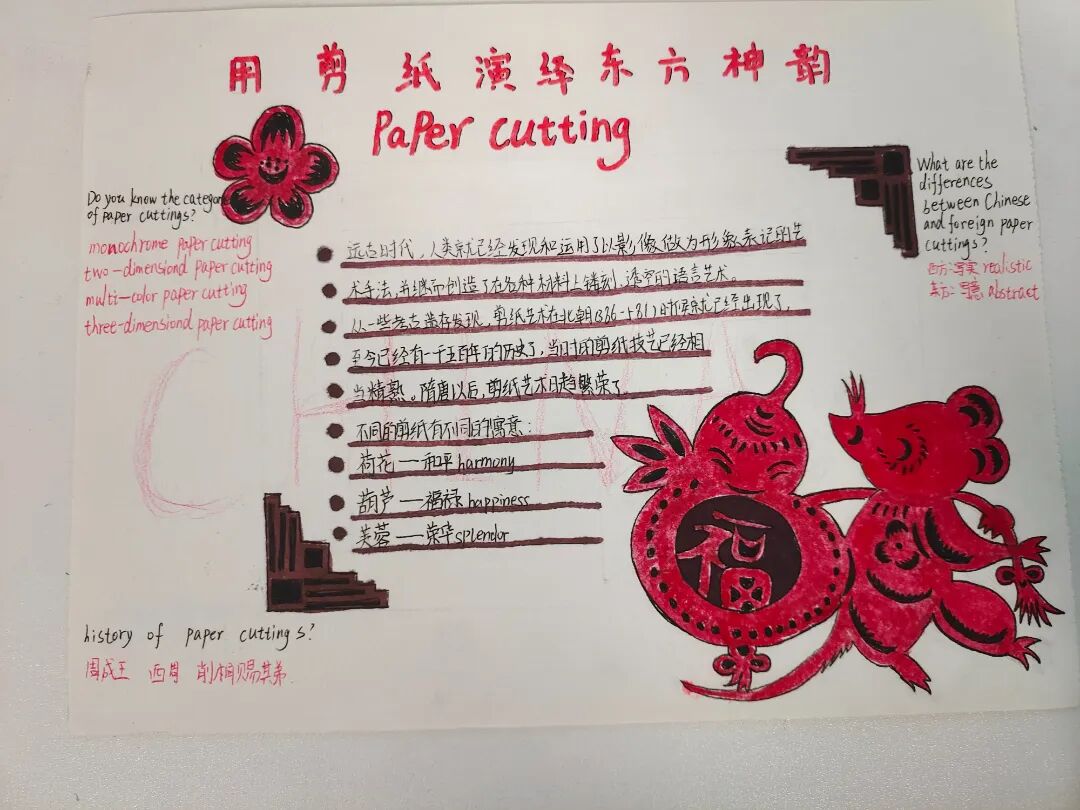 用剪纸演绎东方神韵
Paper cutting
Do you know the categor
of paper cuttings?
monochrome paper cutting
two-dimensiond paper cutting
multi-color paper cutting
three-dimensiond paper cutting
What are the
differences
between Chinese
and foreign paper
cuttings?
西方:写实 realistic
东方:写意 abstract
远古时代,人类就已经发现和运用了以影像做为形象表记的艺
术手法,并继而创造了在各种材料上镂刻、透空的语言艺术。
从一些考古遗存发现,剪纸艺术在北朝(386-581)时期就已经出现了,
至今已经有一千五百年的历史了,当时的剪纸技艺已经相
当精熟。隋唐以后,剪纸艺术日趋繁荣了
不同的剪纸有不同的寓意:
荷花——和平 harmony
葫芦——福禄 happiness
芙蓉——荣华 splendor
福
CHINA
history of paper cuttings?
周成王 西周 削桐赐其弟